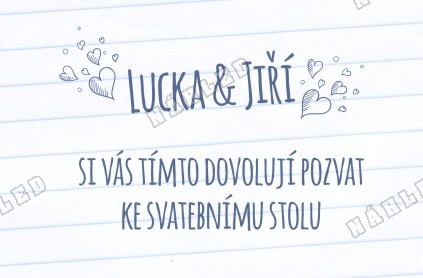 LUCKA & JIŘÍ
SI VÁS TÍMTO DOVOLUJÍ POZVAT
KE SVATEBNÍMU STOLU
NÁHLED
NÁHLED
NÁHLED